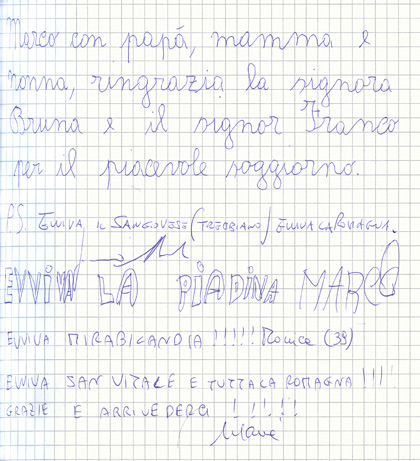 Marco con papá, mamma e
nonna, ringrazia la signora
Bruna e il signor Franco
per il piacevole soggiorno.
P.S. EVVIVA IL SANGIOVESE (TREBBIANO) EVVIVA LA ROMAGNA.
EVVIVA LA PIADINA MARCO
EVVIVA MIRABILANDIA !!!!! Monica (39)
EVVIVA SAN VITALE E TUTTA LA ROMAGNA !!!
GRAZIE E ARRIVEDERCI !!!!!